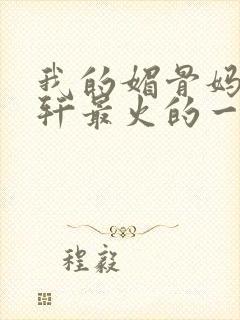 我的媚骨妈
轩最火的一
程毅